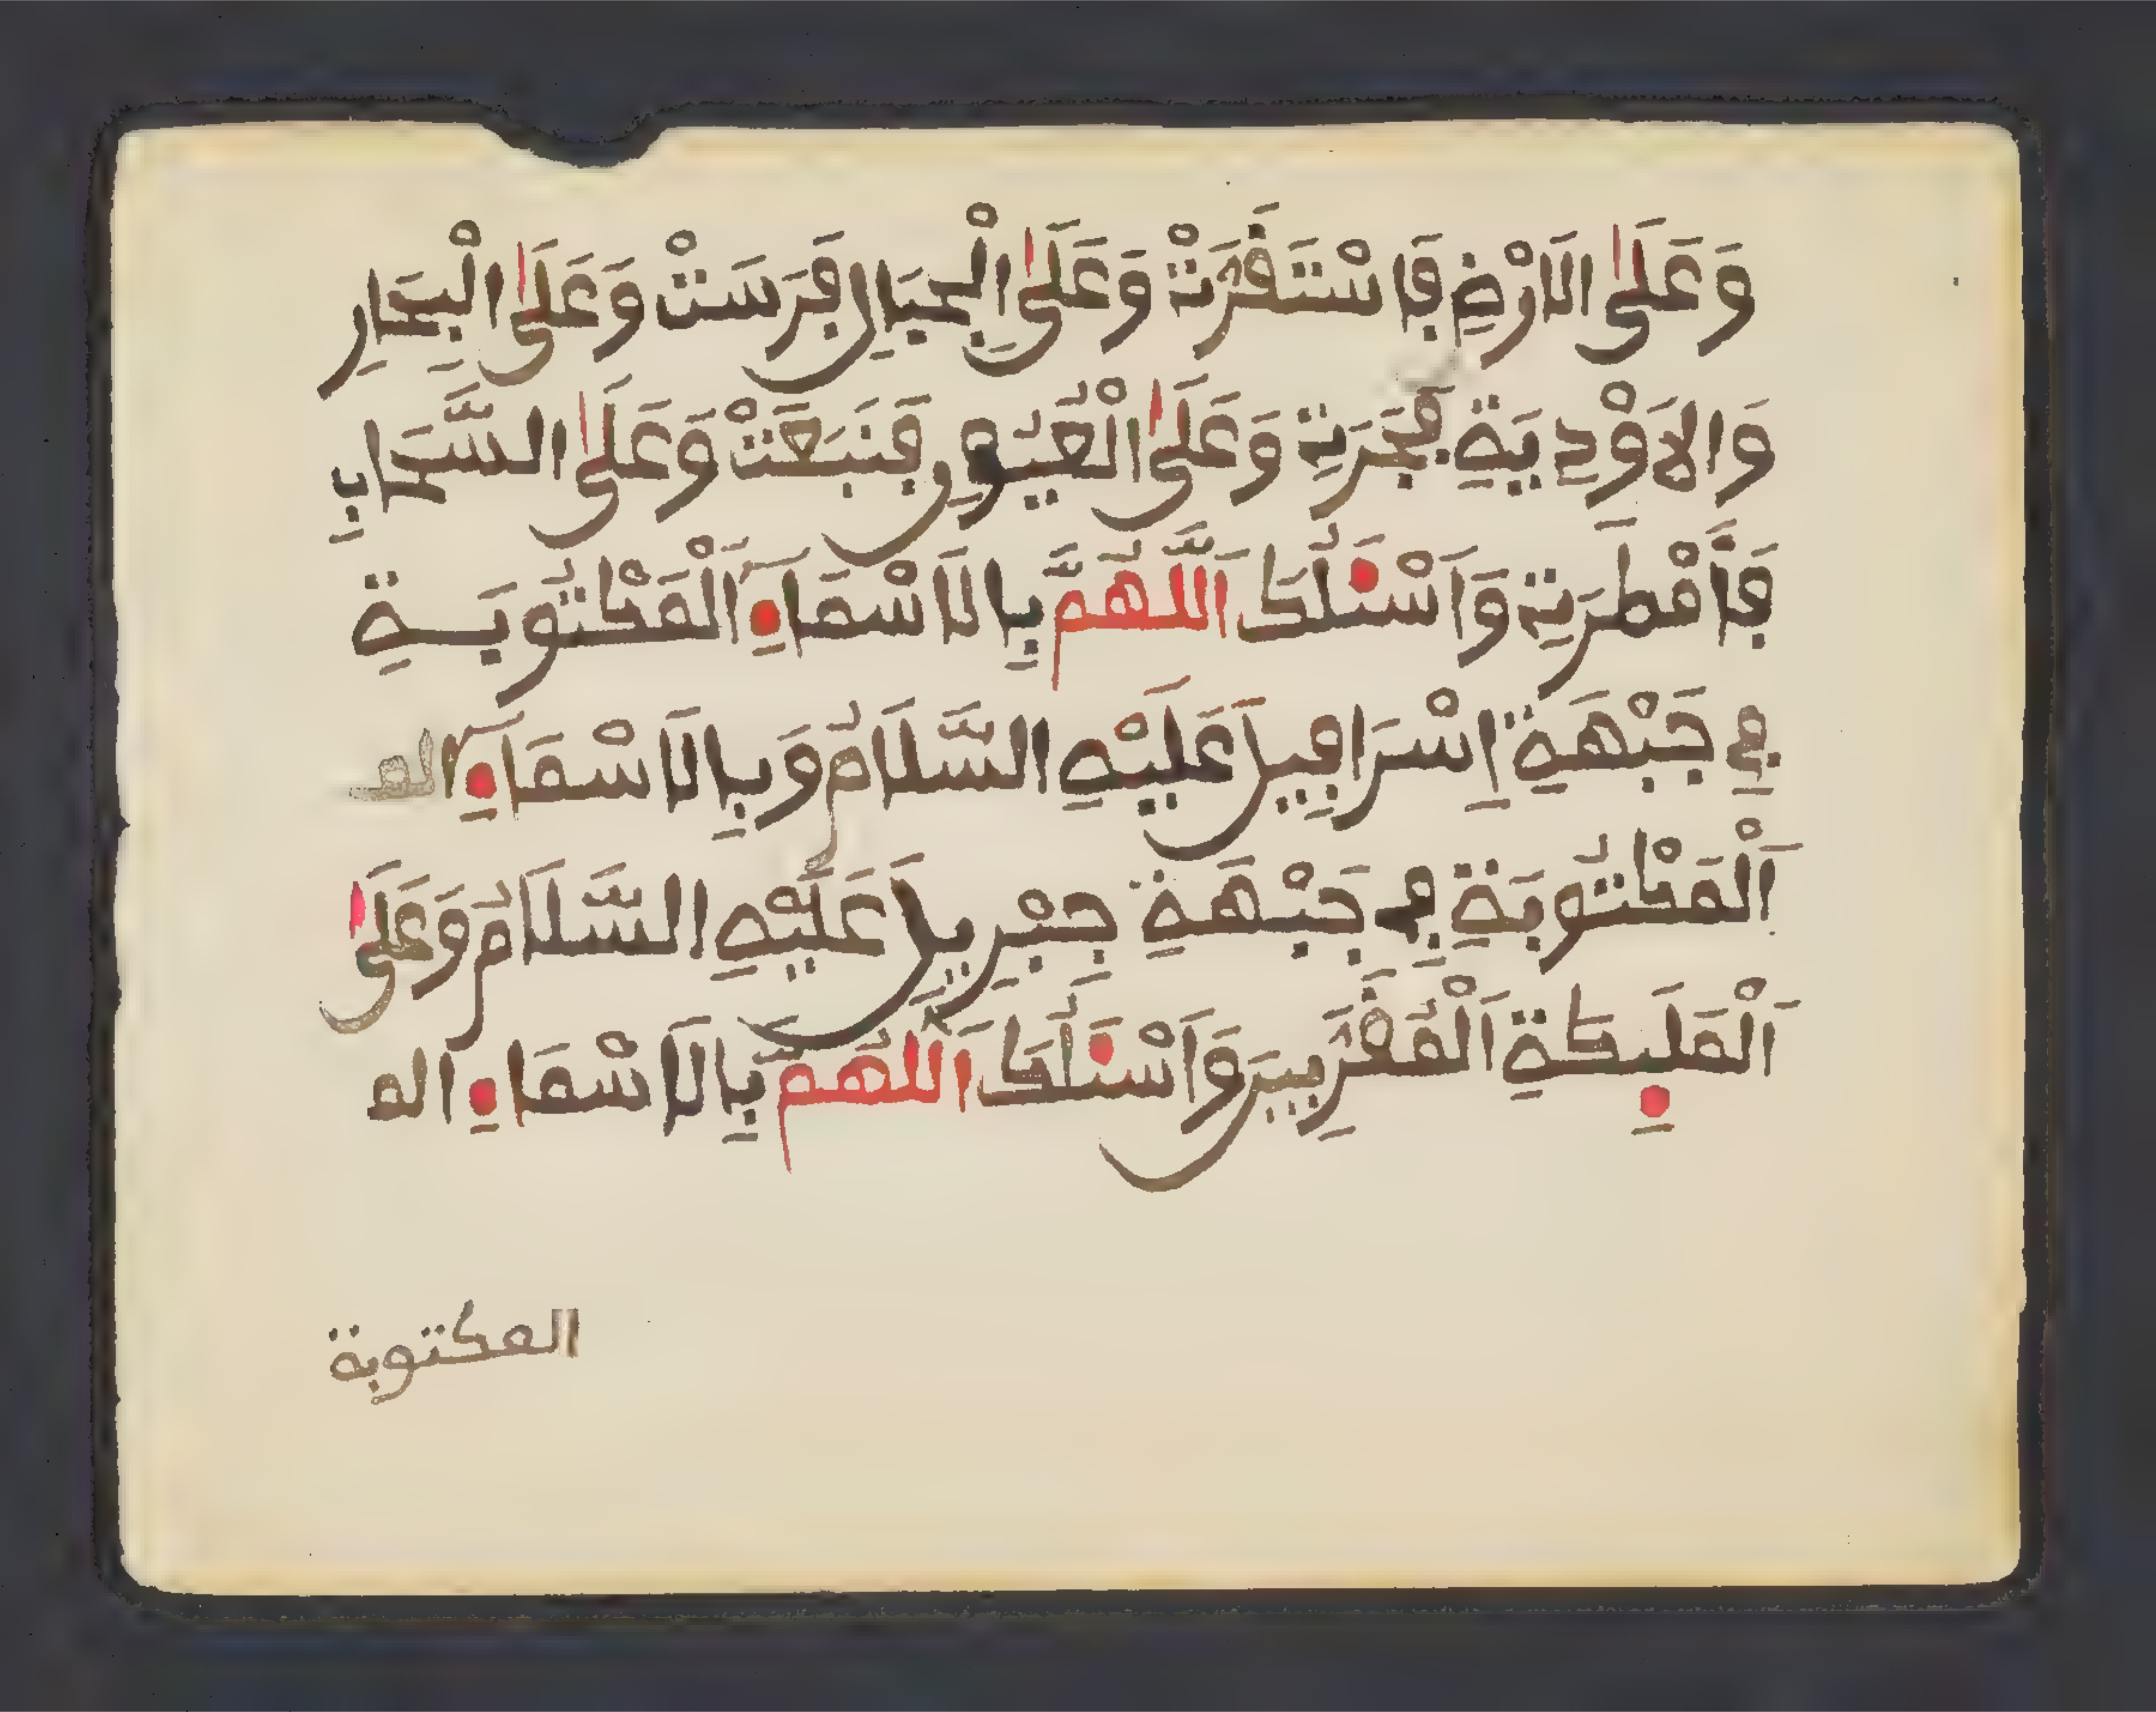 وَعَلَى الَارْضِ فَاسْتَقَرَّتْ وَعَلَى الْجِبَالِ فَرَسَتْ وَعَلَى الْبِحَارِ
وَالاَوْدِيَةِ فَجَرَتْ وَعَلَى الْعُيُونِ فَنَبَعَتْ وَعَلَى السَّحَابِ
فَأَمْطَرَتْ وَأَسْئَلُكَ اَللَّهُمَّ بِالَاسْمَاءِ اَلْمَكْتُوبَةِ
فِي جَبْهَةِ إِسْرَافِيلَ عَلَيْهِ السَّلَامُ وَبِالَاسْمَاءِ المـ
اَلْمَكْتُوبَةِ فِي جَبْهَةِ جِبْرِيلَ عَلَيْهِ السَّلَامُ وَعَلَى
اَلْمَلَئِكَةِ اَلْمُقَرَّبِينَ وَأَسْئَلُكَ اَللَّهُمَّ بِالَاسْمَاءِ المـ
المكتوبة